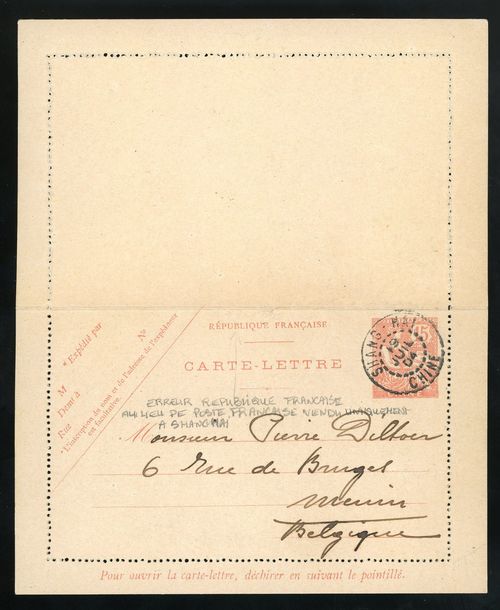 RÉPUBLIQUE FRANÇAISE
CARTE-LETTRE
15
SHANG-HAI
CHINE
* Expédié par
M
Domt à
Rue
N°
* L'indication du nom et de l'adresse de l'expéditeur
est facultative.
ERREUR REPUBLIQUE FRANCAISE
AU LIEU DE POSTE FRANCAISE VENDU UNIQUEMENT
A SHANGHAI
Monsieur Pierre
6 Rue de Bruges
Menin
Belgique
Pour ouvrir la carte-lettre, déchirer en suivant le pointillé.